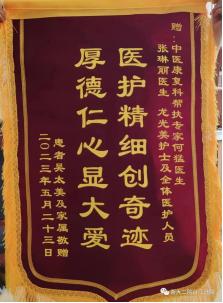 赠：中医康复科帮扶专家何猛医生
张琳丽医生 龙光美护士及全体医护人员
医护精细创奇迹
厚德仁心显大爱
患者吴太美及家属敬赠
二〇二三年五月二十三日